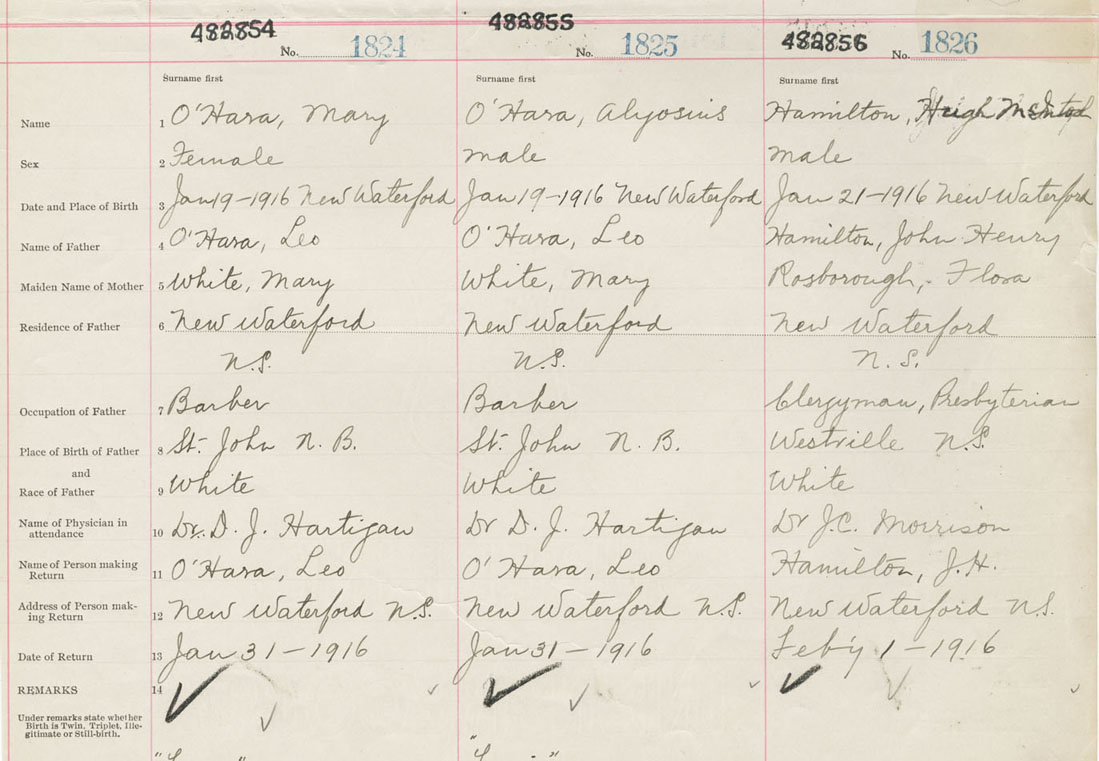 482854 482855 482856
No. 1824 No. 1825 No. 1826
Surname first Surname first Surname first
Name 1 O'Hara, Mary O'Hara, Alyosius Hamilton, Hugh McIntosh
Sex 2 Female male male
Date and Place of Birth 3 Jan 19-1916 New Waterford Jan 19-1916 New Waterford Jan 21-1916 New Waterford
Name of Father 4 O'Hara, Leo O'Hara, Leo Hamilton, John Henry
Maiden Name of Mother 5 White, Mary White, Mary Rosborough, Flora
Residence of Father 6 New Waterford New Waterford New Waterford
N.S. N.S. N.S.
Occupation of Father 7 Barber Barber Clergyman, Presbyterian
Place of Birth of Father 8 St. John N.B. St. John N.B. Westville N.S.
and
Race of Father 9 White White White
Name of Physician in
attendance 10 Dr. D. J. Hartigan Dr D. J. Hartigan Dr J.C. Morrison
Name of Person making
Return 11 O'Hara, Leo O'Hara, Leo Hamilton, J.H.
Address of Person mak-
ing Return 12 New Waterford N.S. New Waterford N.S. New Waterford N.S.
Date of Return 13 Jan 31-1916 Jan 31-1916 Feb'y 1-1916
REMARKS 14
Under remarks state whether
Birth is Twin, Triplet, Ille-
gitimate or Still-birth.